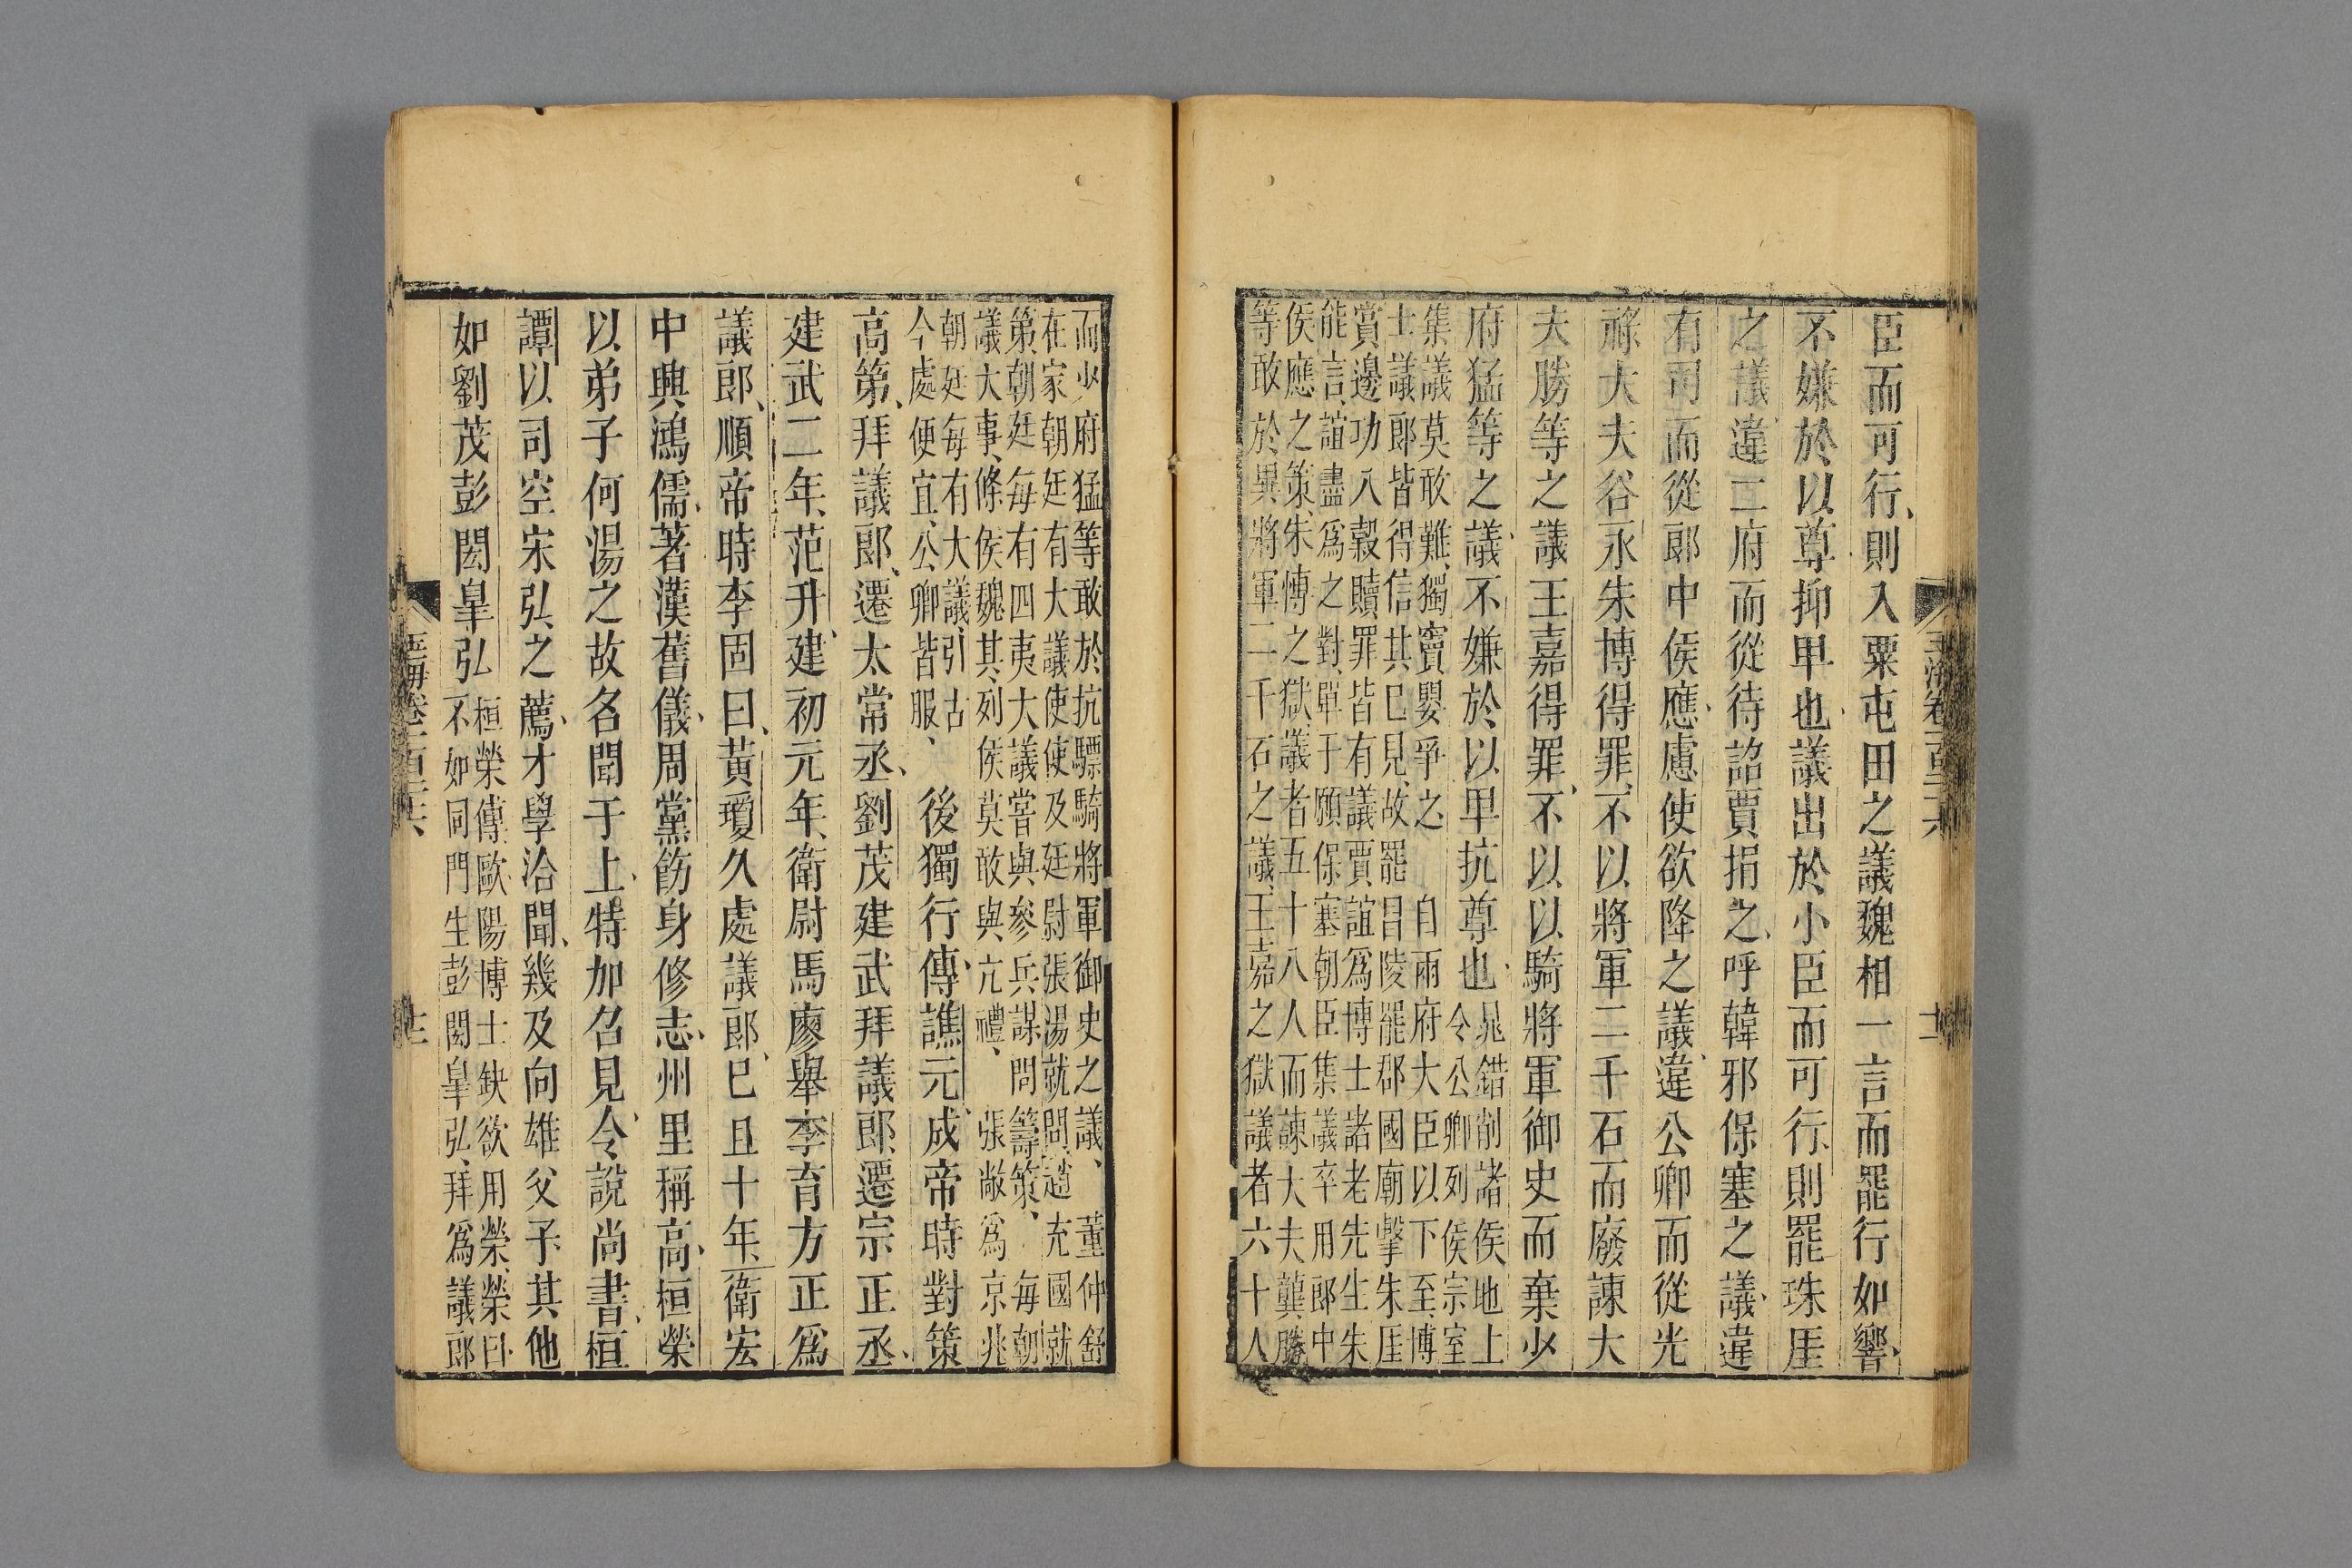 臣而可行、則入粟屯田之議魏相一言而罷行如響、
不嫌於以尊抑卑也、議出於小臣而可行、則罷珠厓
之議、違二府而從待詔賈捐之、呼韓邪保塞之議、違
有司而從郎中侯應、慮使欲降之議、違公卿而從光
祿大夫谷永、朱博得罪、不以將軍二千石而廢諫大
夫勝等之議、王嘉得罪、不以以騎將軍御史而棄少
府猛等之議、不嫌於以卑抗尊也、
晁錯削諸侯地上
令公卿列侯宗室
集議莫敢難、獨竇嬰爭之 自兩府大臣以下至博
士議郎皆得信其己見、故罷昌陵罷郡國廟擊朱厓
賞邊功入穀贖罪皆有議、賈誼爲博士諸老先生朱
能言、誼盡爲之對、單于願保塞朝臣集議卒用郎中
侯應之策、朱博之獄、議者五十八人而諫大夫龔勝
等敢於異將軍二千石之議、王嘉之獄議者六十人
而少府猛等敢於抗驃騎將軍御史之議、 董仲舒
在家朝廷有大議使使及廷尉張湯就問、趙充國就
第、朝廷每有四夷大議嘗與參兵謀問籌策、 每朝
議大事、條侯魏其、列侯莫敢與亢禮、 張敞爲京兆
朝廷每有大議、引古
今處便宜、公卿皆服、
後獨行傳、譙元、成帝時對策
高第、拜議郎、遷太常丞、劉茂建武拜議郎、遷宗正丞、
建武二年、范升、建初元年、衛尉馬廖舉李育方正爲
議郎、順帝時李固曰、黃瓊久處議郎、已且十年、衛宏
中興鴻儒、著漢舊儀、周黨飭身修志、州里稱高、桓榮
以弟子何湯之故名聞于上、特加召見、令說尚書、桓
譚以司空宋弘之薦、才學洽聞、幾及向雄父子、其他
如劉茂彭閎臯弘
桓榮傳、歐陽博士缺欲用榮、榮曰、
不如同門生彭閎臯弘、拜爲議郎